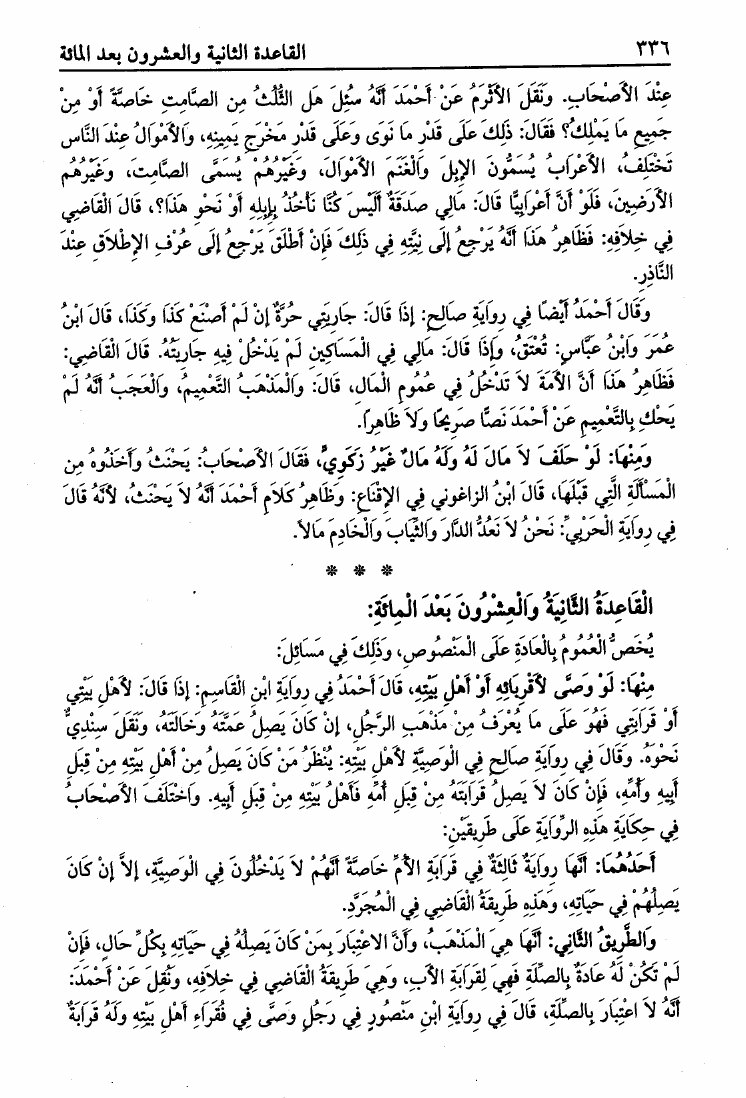 ٣٣٦ القاعدة الثانية والعشرون بعد المائة
عِنْدَ الأَصْحَابِ. وَنَقَلَ الأَثْرَمُ عَنْ أَحْمَدَ أَنَّهُ سُئِلَ هَلِ الثُّلُثُ مِنِ الصَّامِتِ خَاصَّةً أَوْ مِنْ
جَمِيعِ مَا يَمْلِكُ؟ فَقَالَ: ذٰلِكَ عَلَى قَدْرِ مَا نَوَى وَعَلَى قَدْرِ مَخْرَجِ يَمِينِهِ، وَالأَمْوَالُ عِنْدَ النَّاسِ
تَخْتَلِفُ، الأَعْرَابُ يُسَمُّونَ الإِبِلَ وَالْغَنَمَ الأَمْوَالَ، وَغَيْرُهُمْ يُسَمَّى الصَّامِتَ، وَغَيْرُهُم
الأَرَضِينَ، فَلَوْ أَنَّ أَعْرَابِيًّا قَالَ: مَالِي صَدَقَةٌ أَلَيْسَ كُنَّا نَأْخُذُ بِإِبِلِهِ أَوْ نَحْوِ هَذَا؟، قَالَ الْقَاضِي
فِي خِلاَفِهِ: فَظَاهِرُ هَذَا أَنَّهُ يَرْجِعُ إِلَى نِيَّتِهِ فِي ذَلِكَ فَإِنْ أَطْلَقَ يَرْجِعُ إِلَى عُرْفِ الإِطْلاَقِ عِنْدَ
النَّاذِرِ.
وَقَالَ أَحْمَدُ أَيْضًا فِي رِوَايَةِ صَالِحٍ: إِذَا قَالَ: جَارِيَتِي حُرَّةٌ إِنْ لَمْ أَصْنَعْ كَذَا وَكَذَا، قَالَ ابْنُ
عُمَرَ وَابْنُ عَبَّاسٍ: تُعْتَقُ، وَإِذَا قَالَ: مَالِي فِي الْمَسَاكِينِ لَمْ يَدْخُلْ فِيهِ جَارِيَتُهُ. قَالَ الْقَاضِي:
فَظَاهِرُ هَذَا أَنَّ الأَمَةَ لاَ تَدْخُلُ فِي عُمُومِ الْمَالِ، قَالَ: وَالْمَذْهَبُ التَّعْمِيمُ، وَالْعَجَبُ أَنَّهُ لَمْ
يَحْكِ بِالتَّعْمِيمِ عَنْ أَحْمَدَ نَصًّا صَرِيحًا وَلاَ ظَاهِرًا.
وَمِنْهَا: لَوْ حَلَفَ لاَ مَالَ لَهُ وَلَهُ مَالٌ غَيْرُ زَكَوِيٍّ، فَقَالَ الأَصْحَابُ: يَحْنَثُ وَأَخَذُوهُ مِن
الْمَسْأَلَةِ الَّتِي قَبْلَهَا، قَالَ ابْنُ الزاغوني فِي الإِقْنَاعِ: وَظَاهِرُ كَلاَمِ أَحْمَدَ أَنَّهُ لاَ يَحْنَثُ، لأَنَّهُ قَالَ
فِي رِوَايَةِ الْحَرْبِيِّ: نَحْنُ لاَ نَعُدُّ الدَّارَ وَالثِّيَابَ وَالْخَادِمَ مَالاً.
* * *
الْقَاعِدَةُ الثَّانِيَةُ وَالْعِشْرُونَ بَعْدَ الْمِائَةِ:
يُخَصُّ الْعُمُومُ بِالْعَادَةِ عَلَى الْمَنْصُوصِ، وَذَلِكَ فِي مَسَائِلَ:
مِنْهَا: لَوْ وَصَّى لأَقْرِبَائِهِ أَوْ أَهْلِ بَيْتِهِ، قَالَ أَحْمَدُ فِي رِوَايَةِ ابْنِ الْقَاسِمِ: إِذَا قَالَ: لأَهْلِ بَيْتِي
أَوْ قَرَابَتِي فَهُوَ عَلَى مَا يُعْرَفُ مِنْ مَذْهَبِ الرَّجُلِ، إِنْ كَانَ يَصِلُ عَمَّتَهُ وَخَالَتَهُ، وَنَقَلَ سِنْدِيٌّ
نَحْوَهُ. وَقَالَ فِي رِوَايَةِ صَالِحٍ فِي الْوَصِيَّةِ لأَهْلِ بَيْتِهِ: يُنْظَرُ مَنْ كَانَ يَصِلُ مِنْ أَهْلِ بَيْتِهِ مِنْ قِبَلِ
أَبِيهِ وَأُمِّهِ، فَإِنْ كَانَ لاَ يَصِلُ قَرَابَتَهُ مِنْ قِبَلِ أُمِّهِ فَأَهْلُ بَيْتِهِ مِنْ قِبَلِ أَبِيهِ. وَاخْتَلَفَ الأَصْحَابُ
فِي حِكَايَةِ هَذِهِ الرِّوَايَةِ عَلَى طَرِيقَيْنِ:
أَحَدُهُمَا: أَنَّهَا رِوَايَةٌ ثَالِثَةٌ فِي قَرَابَةِ الأُمِّ خَاصَّةً أَنَّهُمْ لاَ يَدْخُلُونَ فِي الْوَصِيَّةِ، إِلاَّ إِنْ كَانَ
يَصِلُهُمْ فِي حَيَاتِهِ، وَهَذِهِ طَرِيقَةُ الْقَاضِي فِي الْمُجَرَّدِ.
وَالطَّرِيقُ الثَّانِي: أَنَّهَا هِيَ الْمَذْهَبُ، وَأَنَّ الاعْتِبَارَ بِمَنْ كَانَ يَصِلُهُ فِي حَيَاتِهِ بِكُلِّ حَالٍ، فَإِنْ
لَمْ تَكُنْ لَهُ عَادَةٌ بِالصِّلَةِ فَهِيَ لِقَرَابَةِ الأَبِ، وَهِيَ طَرِيقَةُ الْقَاضِي فِي خِلاَفِهِ، وَنُقِلَ عَنْ أَحْمَدَ:
أَنَّهُ لاَ اعْتِبَارَ بِالصِّلَةِ، قَالَ فِي رِوَايَةِ ابْنِ مَنْصُورٍ فِي رَجُلٍ وَصَّى فِي فُقَرَاءِ أَهْلِ بَيْتِهِ وَلَهُ قَرَابَةٌ